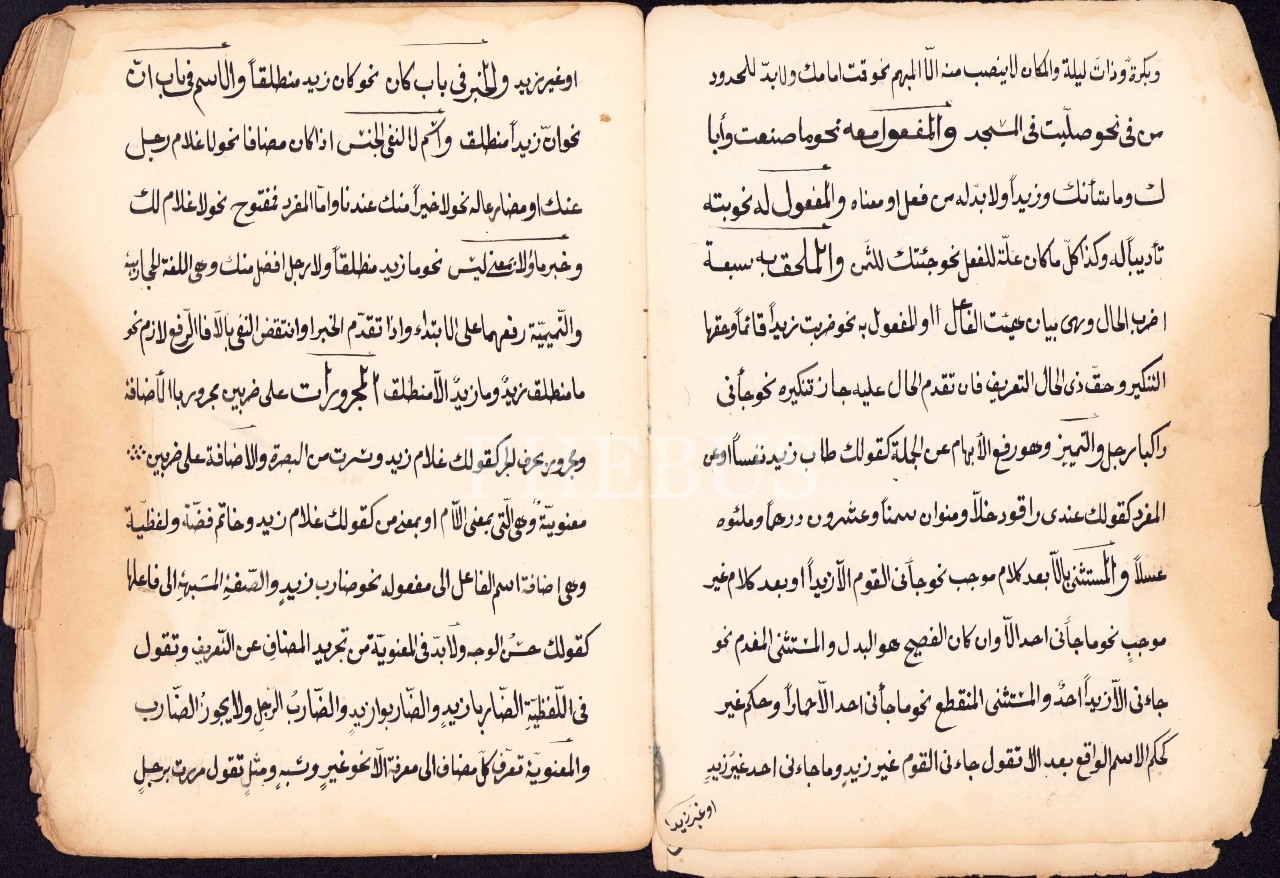 وبكرةً وذات ليلة والمكان لا ينصب منه الّا المبهم نحو قمت امامك ولا بدّ للمحدود
من فى نحو صلّيت فى المسجد والمفعول معه نحو ما صنعت وأبا
ك وما شأنك وزيداً ولا بدّ له من فعل او معناه والمفعول له نحو ضربته
تأديباً له وكذا كلّ ما كان علّة للفعل نحو جئتك للسّمن والملحق به سبعة
اضرب الحال وهى بيان هيئت الفاعل او المفعول به نحو ضربت زيداً قائماً وحقها
التنكير وحقّ ذى الحال التعريف فان تقدم الحال عليه جاز تنكيره نحو جأنى
راكبا رجل والتمييز وهو رفع الأبهام عن الجملة كقولك طاب زيد نفساً او عن
المفرد كقولك عندى راقود خلّاً ومنوان سمناً وعشرون درهماً وملئوه
عسلاً والمستثنى بالّا بعد كلام موجب نحو جأنى القوم الّا زيداً او بعد كلام غير
موجبٍ نحو ما جأنى احد الّا وان كان الفصيح هو البدل والمستثنى المقدم نحو
جاءنى الّا زيداً احدٌ والمستثنى المنقطع نحو ما جأنى احد الّا حماراً وحكم غير
كحكم الاسم الواقع بعد الا تقول جاءنى القوم غير زيدٍ وما جاءنى احد غيرُ زيدٍ
او غير زيد
او غير زيد والخبر فى باب كان نحو كان زيد منطلقاً والاسم فى باب انّ
نحو انّ زيداً منطلق واسم لا لنفى الجنس اذا كان مضافا نحو لا غلام رجل
عندك او مضارعا له نحو لا خيراً منك عندنا وامّا المفرد فمفتوح نحو لا غلام لك
وخبر ما ولا بمعنى ليس نحو ما زيد منطلقاً ولا رجل افضل منك وهى اللغة الحجازية
والتّميميّة رفعهما على الابتداء واذا تقدّم الخبر او انتقض النفى بالّا فالرّفع لازم نحو
ما منطلق زيدٌ وما زيدٌ الّا منطلق المجرورات على ضربين مجرور بالأضافة
ومجرور بحرف الجر كقولك غلام زيد وسرت من البصرة والاضافة على ضربين
معنويّة وهى الّتى بمعنى اللّام او بمعنى من كقولك غلام زيد وخاتم فضّة ولفظيّة
وهى اضافة اسم الفاعل الى مفعوله نحو ضارب زيدٍ والصّفةِ المشبهةِ الى فاعلها
كقولك حسنُ الوجه ولا بدّ فى المعنويّة من تجريد المضاف عن التّعريف وتقول
فى اللّفظيّةِ الضّاربا زيدٍ والضّاربوا زيدٍ والضّاربُ الرّجلِ ولا يجوزُ الضّارب
والمعنويّة تعرّف كلّ مضاف الى معرفة الّا نحو غيرٍ وشبهٍ ومثلٍ تقول مررت برجلٍ
PHEBUS